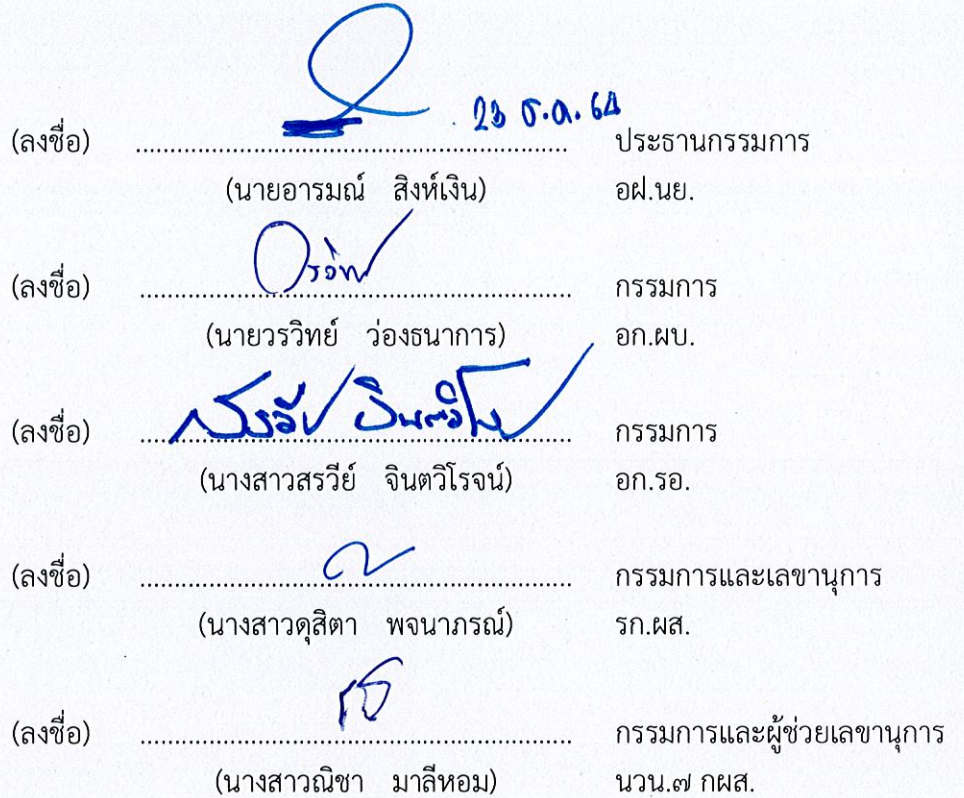 23 ธ.ค. 64
(ลงชื่อ) ........................................................ ประธานกรรมการ
(นายอารมณ์ สิงห์เงิน) อฝ.นย.
วรวิทย์
(ลงชื่อ) ........................................................ กรรมการ
(นายวรวิทย์ ว่องธนาการ) อก.ผบ.
(ลงชื่อ) ........................................................ กรรมการ
(นางสาวสรวีย์ จินตวิโรจน์) อก.รอ.
(ลงชื่อ) ........................................................ กรรมการและเลขานุการ
(นางสาวดุสิตา พจนาภรณ์) รก.ผส.
(ลงชื่อ) ........................................................ กรรมการและผู้ช่วยเลขานุการ
(นางสาวณิชา มาลีหอม) นวน.๗ กผส.